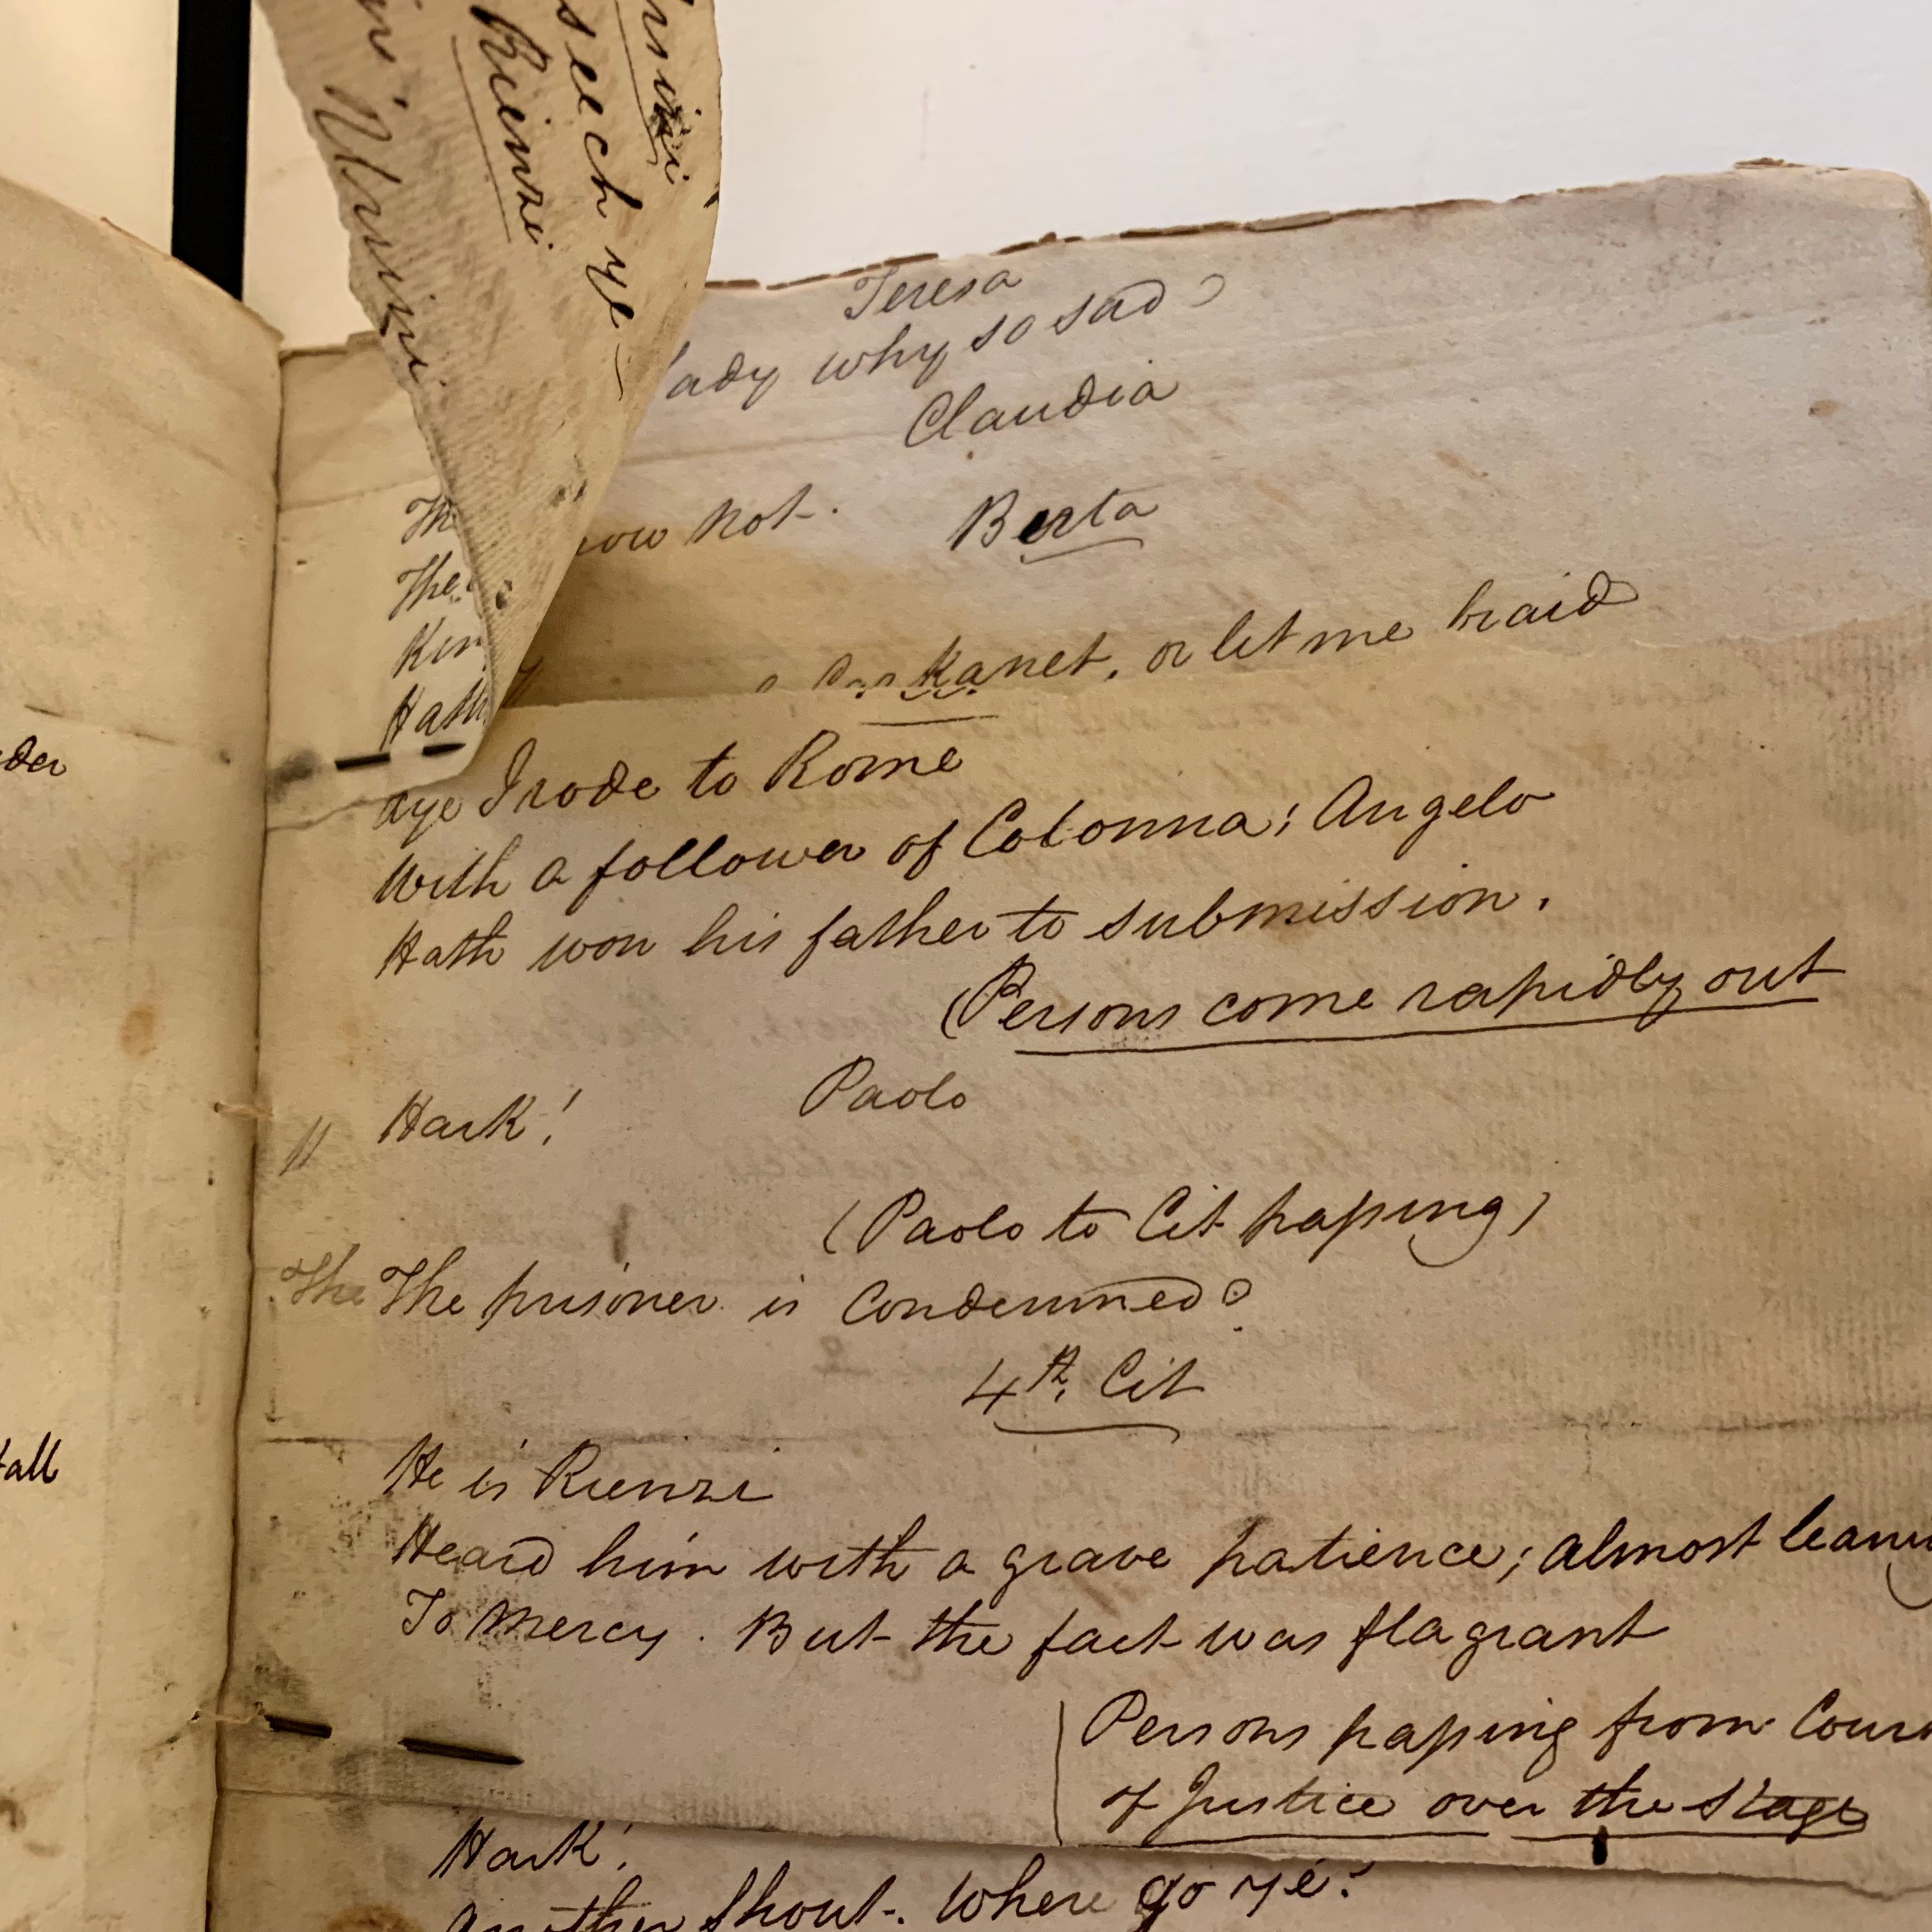 der
tall
Ursini
seech ye
Rienzi
Ursini
Teresa
lady why so sad?
Claudia
now not.
Berta
Kanet, or let me braid
Th
The
Kin
Hath
aye I rode to Rome
With a follower of Colonna; Angelo
Hath won his father to submission.
(Persons come rapidly out
Paolo
Hark!
(Paolo to Cit paſsing)
The The prisoner is Condemned?
4th. Cit
He is Rienzi
Heard him with a grave patience; almost leaning
To Mercy. But the fact was flagrant
Persons paſsing from Cour
of Justice over the Stage
Hark!
Another Shout. Where go ye?